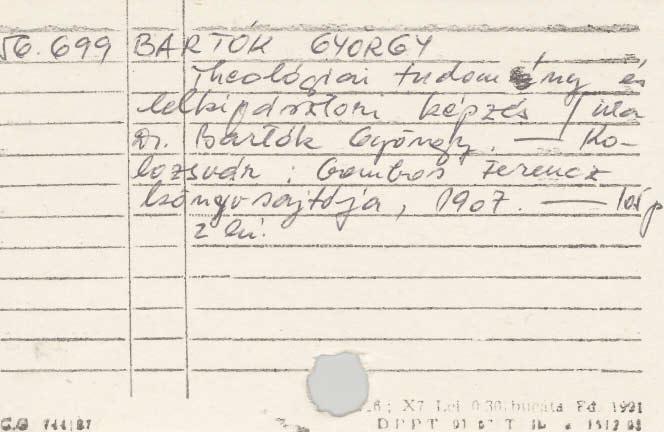 56.699 BARTÓK GYÖRGY
Theológiai tudomány és
lelkipásztori képzés / írta
Dr. Bartók György. — Ko-
lozsvár : Gombos Ferencz
könyvsajtója, 1907. — p
; X7 Lei 0.30/bucata Ed. 1981
C.G 744/87